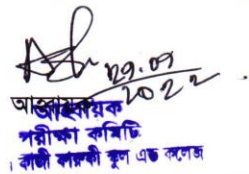 29.09
2022
আহবায়ক
আহবায়ক
পরীক্ষা কমিটি
কাজী ফারুকী স্কুল এন্ড কলেজ